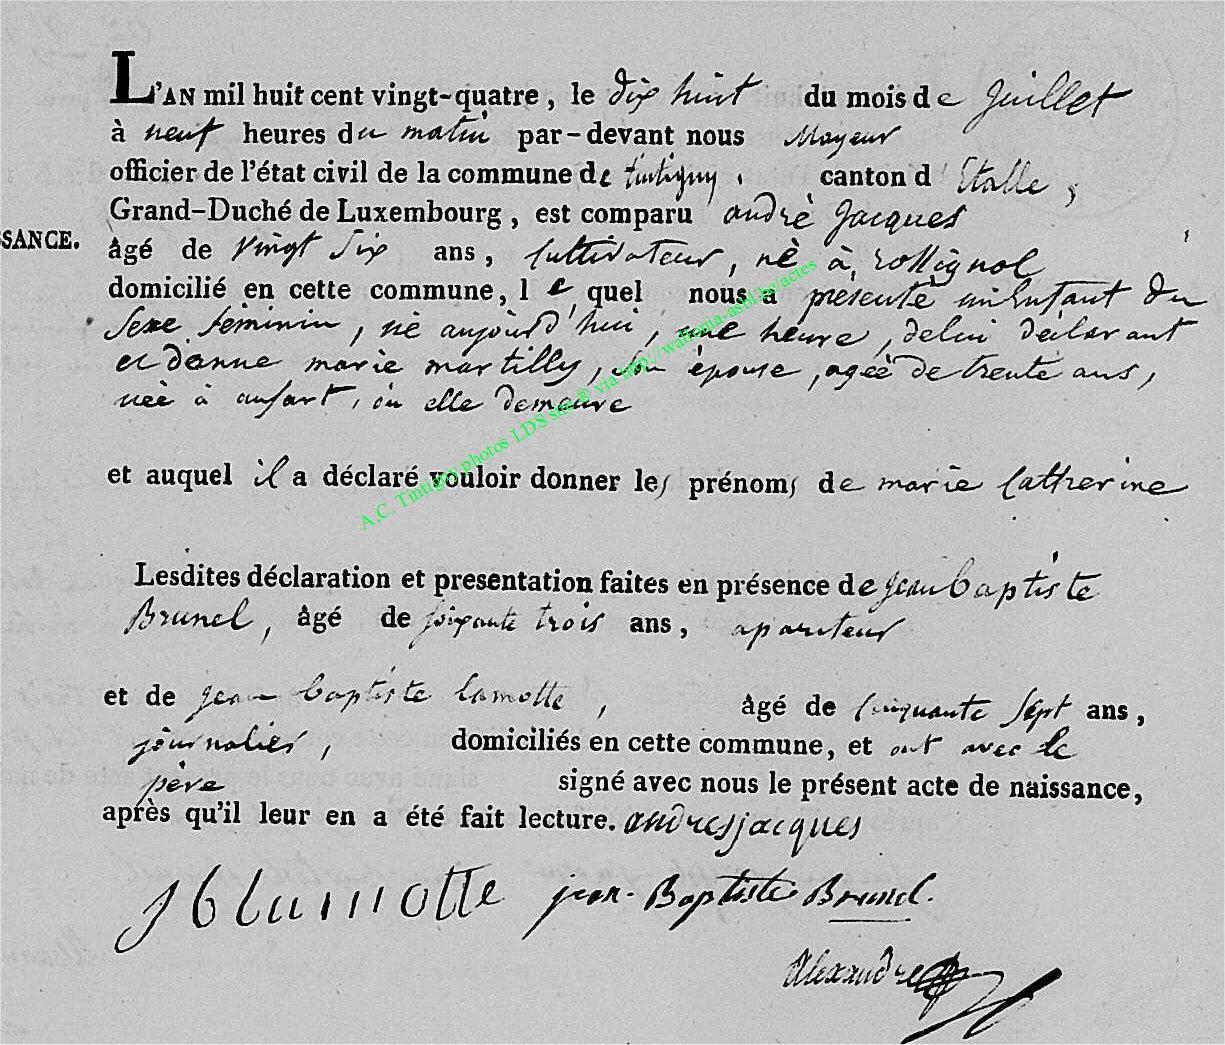 L'AN mil huit cent vingt-quatre, le dix huit du mois de Juillet
à neuf heures du matin par-devant nous Mayeur
officier de l'état civil de la commune de tintigny, canton d'Etalle,
Grand-Duché de Luxembourg, est comparu andrè Jacques
SSANCE.
âgé de vingt Six ans, Cultivateur, nè à rossignol
domicilié en cette commune, le quel nous a présenté un Enfant du
Sexe feminin, nè aujourd'hui, une heure, de lui déclarant
et danne marie martilly, son épouse, agéè de trente ans,
neè à ansart, ou elle demeure
et auquel il a déclaré vouloir donner les prénoms de marie Catherine
Lesdites déclaration et presentation faites en présence de Jean baptiste
Brunel, âgé de soixante trois ans, apariteur
et de Jean baptiste Lamotte, âgé de Cinquante Sept ans,
journalier, domiciliés en cette commune, et ont avec le
père signé avec nous le présent acte de naissance,
après qu'il leur en a été fait lecture. andres jacques
J b lamotte jean-Baptiste Brunel.
Alexandre
A.C. Tintigny photos LDS site © via http://wallonia-asbl.be/actes